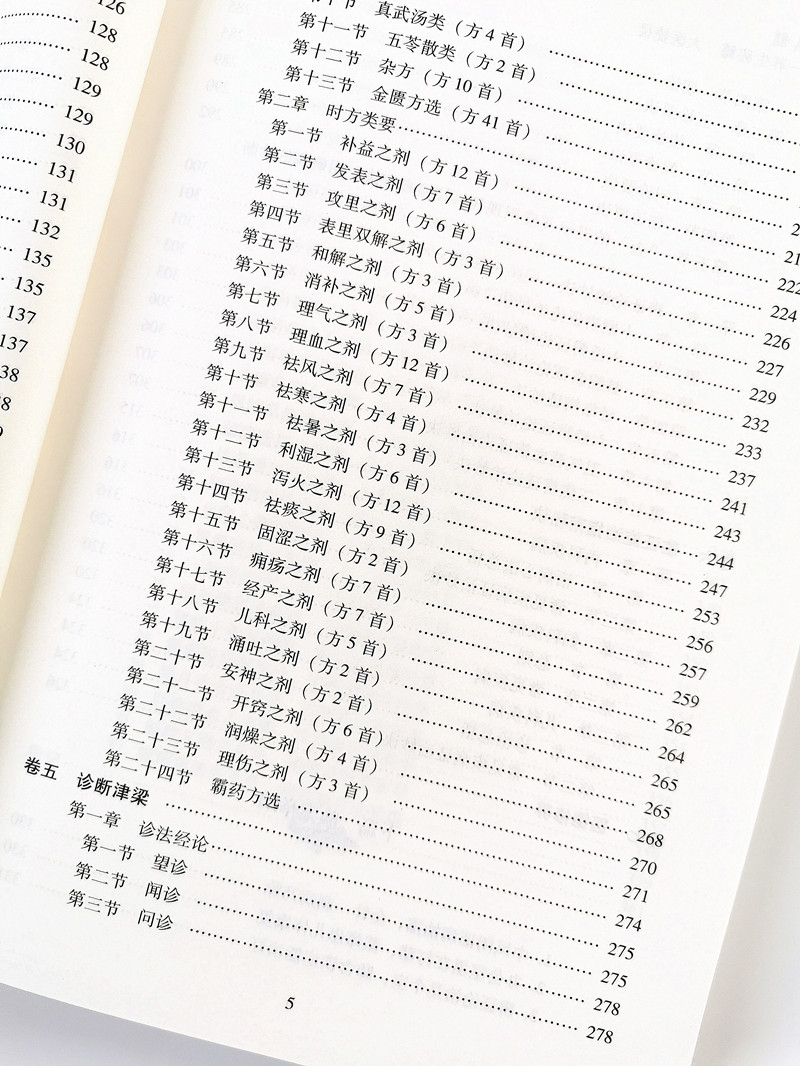 126
128
128
129
129
130
131
131
132
135
135
137
137
38
8
真武汤类（方4首）
第十一节 五苓散类（方2首）
第十二节 杂方（方10首）
第十三节 金匮方选（方41首）
第二章 时方类要
第一节 补益之剂（方12首）
第二节 发表之剂（方7首） 222
第三节 攻里之剂（方6首） 224
第四节 表里双解之剂（方3首） 226
第五节 和解之剂（方3首） 227
第六节 消补之剂（方5首） 229
第七节 理气之剂（方3首） 232
第八节 理血之剂（方12首） 233
第九节 祛风之剂（方7首） 237
第十节 祛寒之剂（方4首） 241
第十一节 祛暑之剂（方3首） 243
第十二节 利湿之剂（方6首） 244
第十三节 泻火之剂（方12首） 247
第十四节 祛痰之剂（方9首） 253
第十五节 固涩之剂（方2首） 256
第十六节 痈疡之剂（方7首） 257
第十七节 经产之剂（方7首） 259
第十八节 儿科之剂（方5首） 262
第十九节 涌吐之剂（方2首） 264
第二十节 安神之剂（方2首） 265
第二十一节 开窍之剂（方6首） 265
第二十二节 润燥之剂（方4首） 268
第二十三节 理伤之剂（方3首） 270
第二十四节 霸药方选 271
卷五 诊断津梁 274
第一章 诊法经论 275
第一节 望诊 275
第二节 闻诊 278
第三节 问诊 278
5